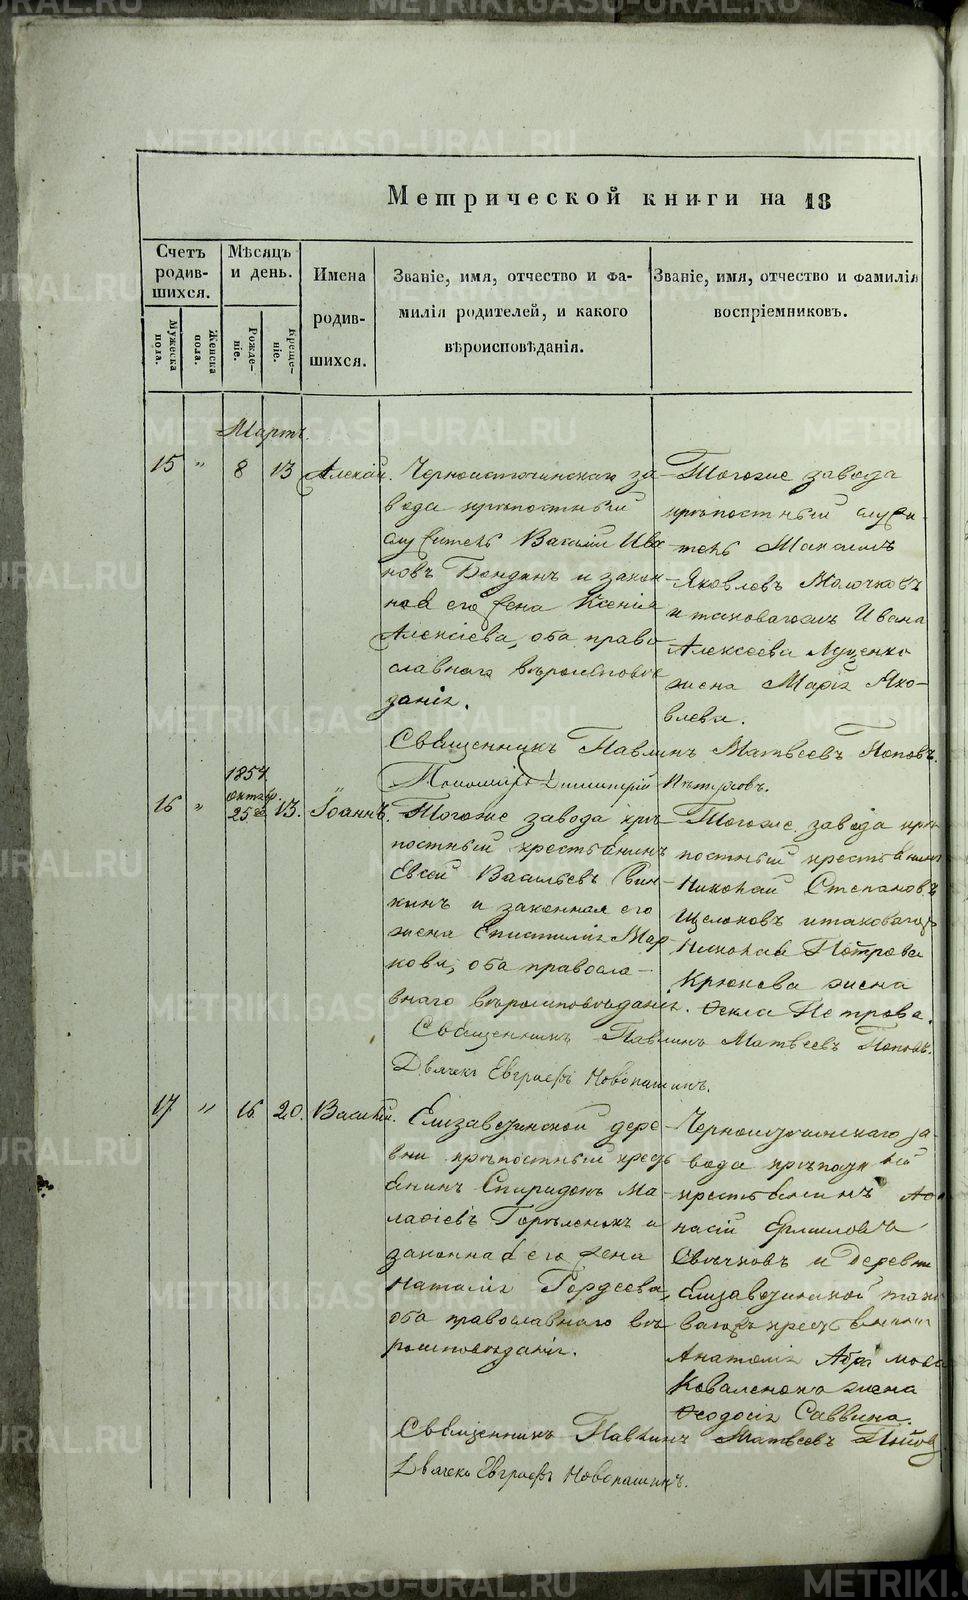 Метрической книги на 18
Счетъ родившихся.
Мѣсяцъ и день.
Имена родившихся.
Званіе, имя, отчество и фамилія родителей, и какого вѣроисповѣданія.
Званіе, имя, отчество и фамилія воспріемниковъ.
Мужеска пола.
Женска пола.
Рожденіе.
Крещеніе.
Мартъ.
15 " 8 13 Алексій.
Черноисточинскаго за-
вода крѣпостный
служитель Василій Ива
новъ Бондинъ и закон
ная его жена Ксенія
Алексіева, оба право
славнаго вѣроисповѣ
данія.
Тогоже завода
крѣпостный служи-
тель Максимъ
Яковлевъ Молочковъ
и таковагожъ Ивана
Алексеева Луценко
жена Марія Яко-
влева.
Священникъ Павлинъ Матвеевъ Поповъ.
Пономарь Димитрій Петровъ.
16 " 1857 октябр. 25го 13. Іоаннъ.
Тогоже завода крѣ
постный крестьянинъ
Евсей Васильевъ
и законная его
жена Епистилія Мар
кова, оба правосла-
внаго вѣроисповѣданія.
Тогоже завода крѣ
постный крестьянинъ
Николай Степановъ
Щелоковъ итаковагожъ
Николая Петрова
Крюкова жена
Ѳекла Петрова.
Священникъ Павлинъ Матвеевъ Поповъ.
Дьячекъ Евграфъ Новопашинъ.
17 " 16 20. Василій.
Елизаветинской дере-
вни крѣпостный кресть
янинъ Спиридонъ Ма-
лафіевъ и
законная его жена
Наталія Гордеева,
оба православнаго вѣ
роисповѣданія.
Черноисточинскаго за-
вода крѣпостный
крестьянинъ
Ермилова
и Деревни
Елизаветинской тако
вагожъ крестьянина
Анатолія Абрамова
Коваленока жена
Ѳеодосія Саввина.
Священникъ Павлинъ Матвеевъ Поповъ
Дьячекъ Евграфъ Новопашинъ.
METRIKI.GASO-URAL.RU